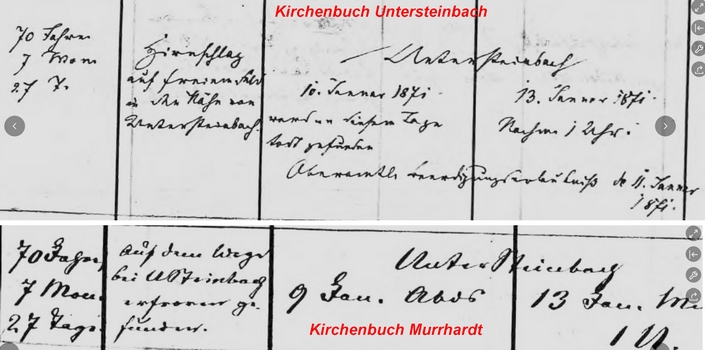 Kirchenbuch Untersteinbach
70 Jahre
7 Mon
27 T.
Hirnschlag
auf freiem Feld
in der Nähe von
Untersteinbach.
Untersteinbach
10. Januar 1871.
wurde an diesem Tage
todt gefunden
13. Januar 1871.
Nachm 1 Uhr.
Oberamtl. Beerdigungserlaubniß d. 11. Januar
1871.
70 Jahre,
7 Mon.
27 Tage.
Auf dem Wege
bei USteinbach
erfroren ge-
funden.
UnterSteinbach
9 Jan. Abds
13 Jan. M
1 U.
Kirchenbuch Murrhardt